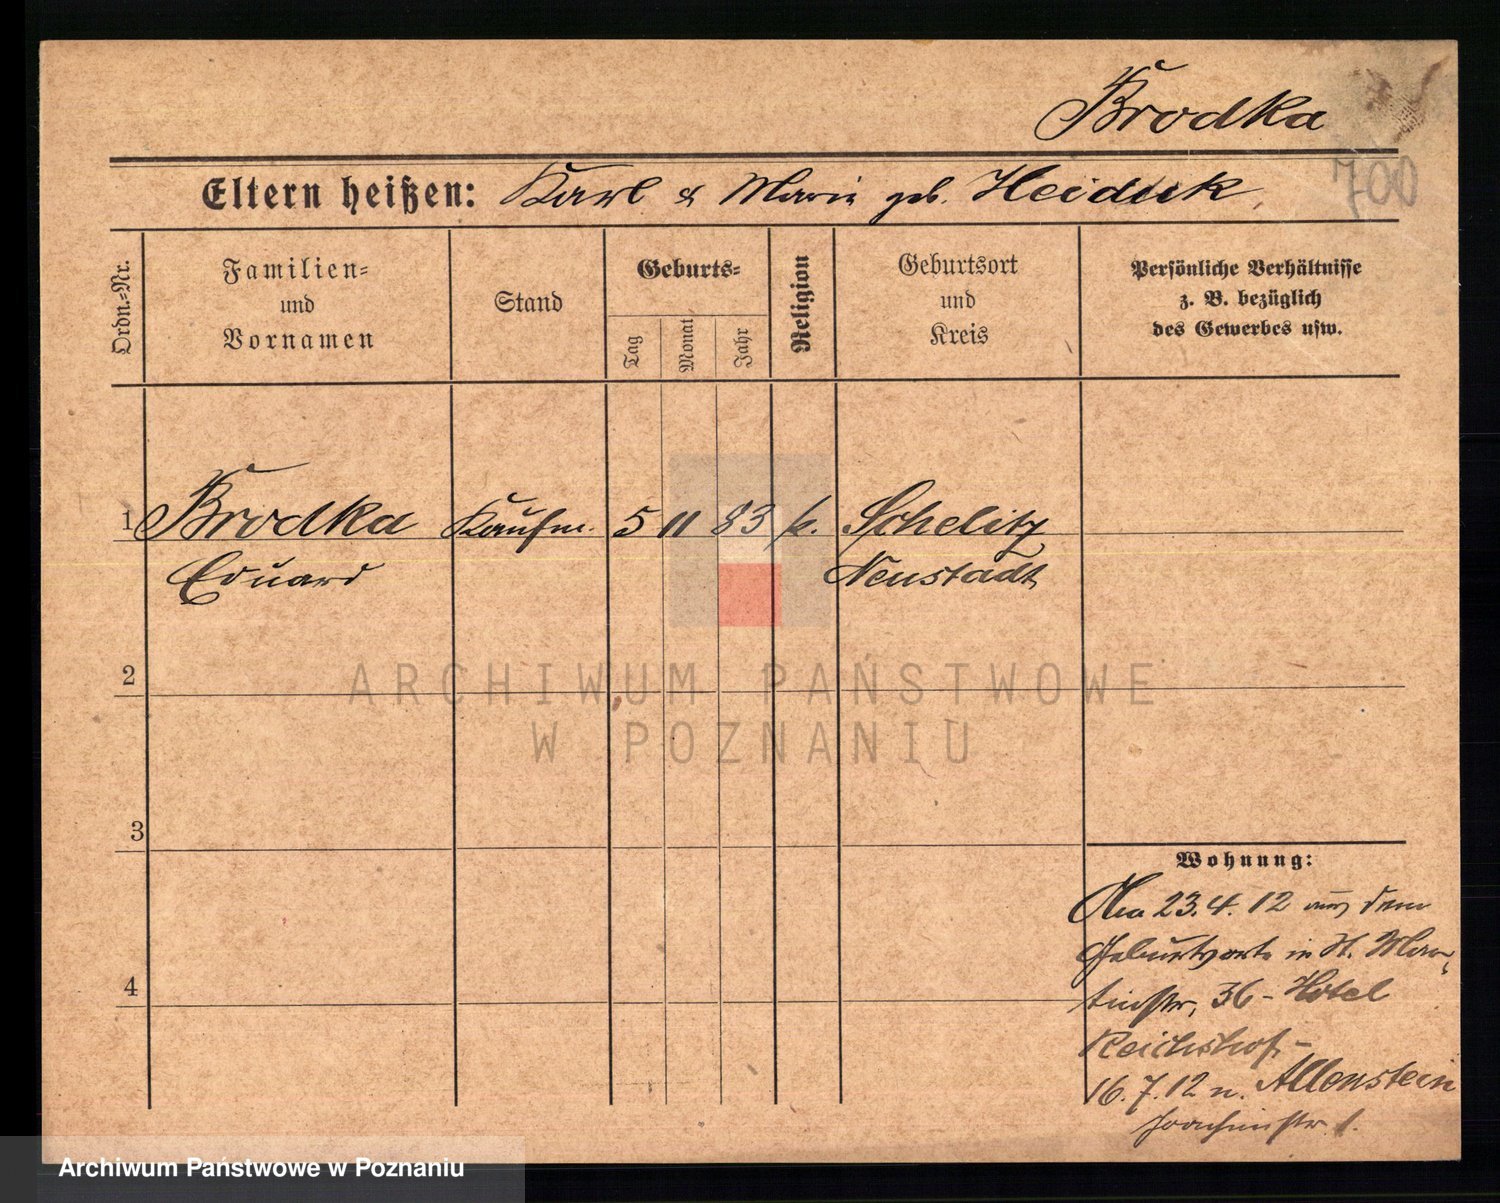 Brodka
700
Eltern heißen: Karl & Marie geb. Heiduk.
Ordn.=Nr.
Familien=
und
Vornamen
Stand
Geburts=
Tag
Monat
Jahr
Religion
Geburtsort
und
Kreis
Persönliche Verhältnisse
z. B. bezüglich
des Gewerbes usw.
1 Brodka Kaufm. 5 11 83 k. Schelitz
Eduard Neustadt
2
ARCHIWUM PAŃSTWOWE
W POZNANIU
3
Wohnung:
23.4.12 aus dem
Geburtsorte in St. Mar-
tinstr. 36 - Hotel
4
Reichshof. -
16.7.12 n. Allenstein
Joachimstr. 1.
Archiwum Państwowe w Poznaniu